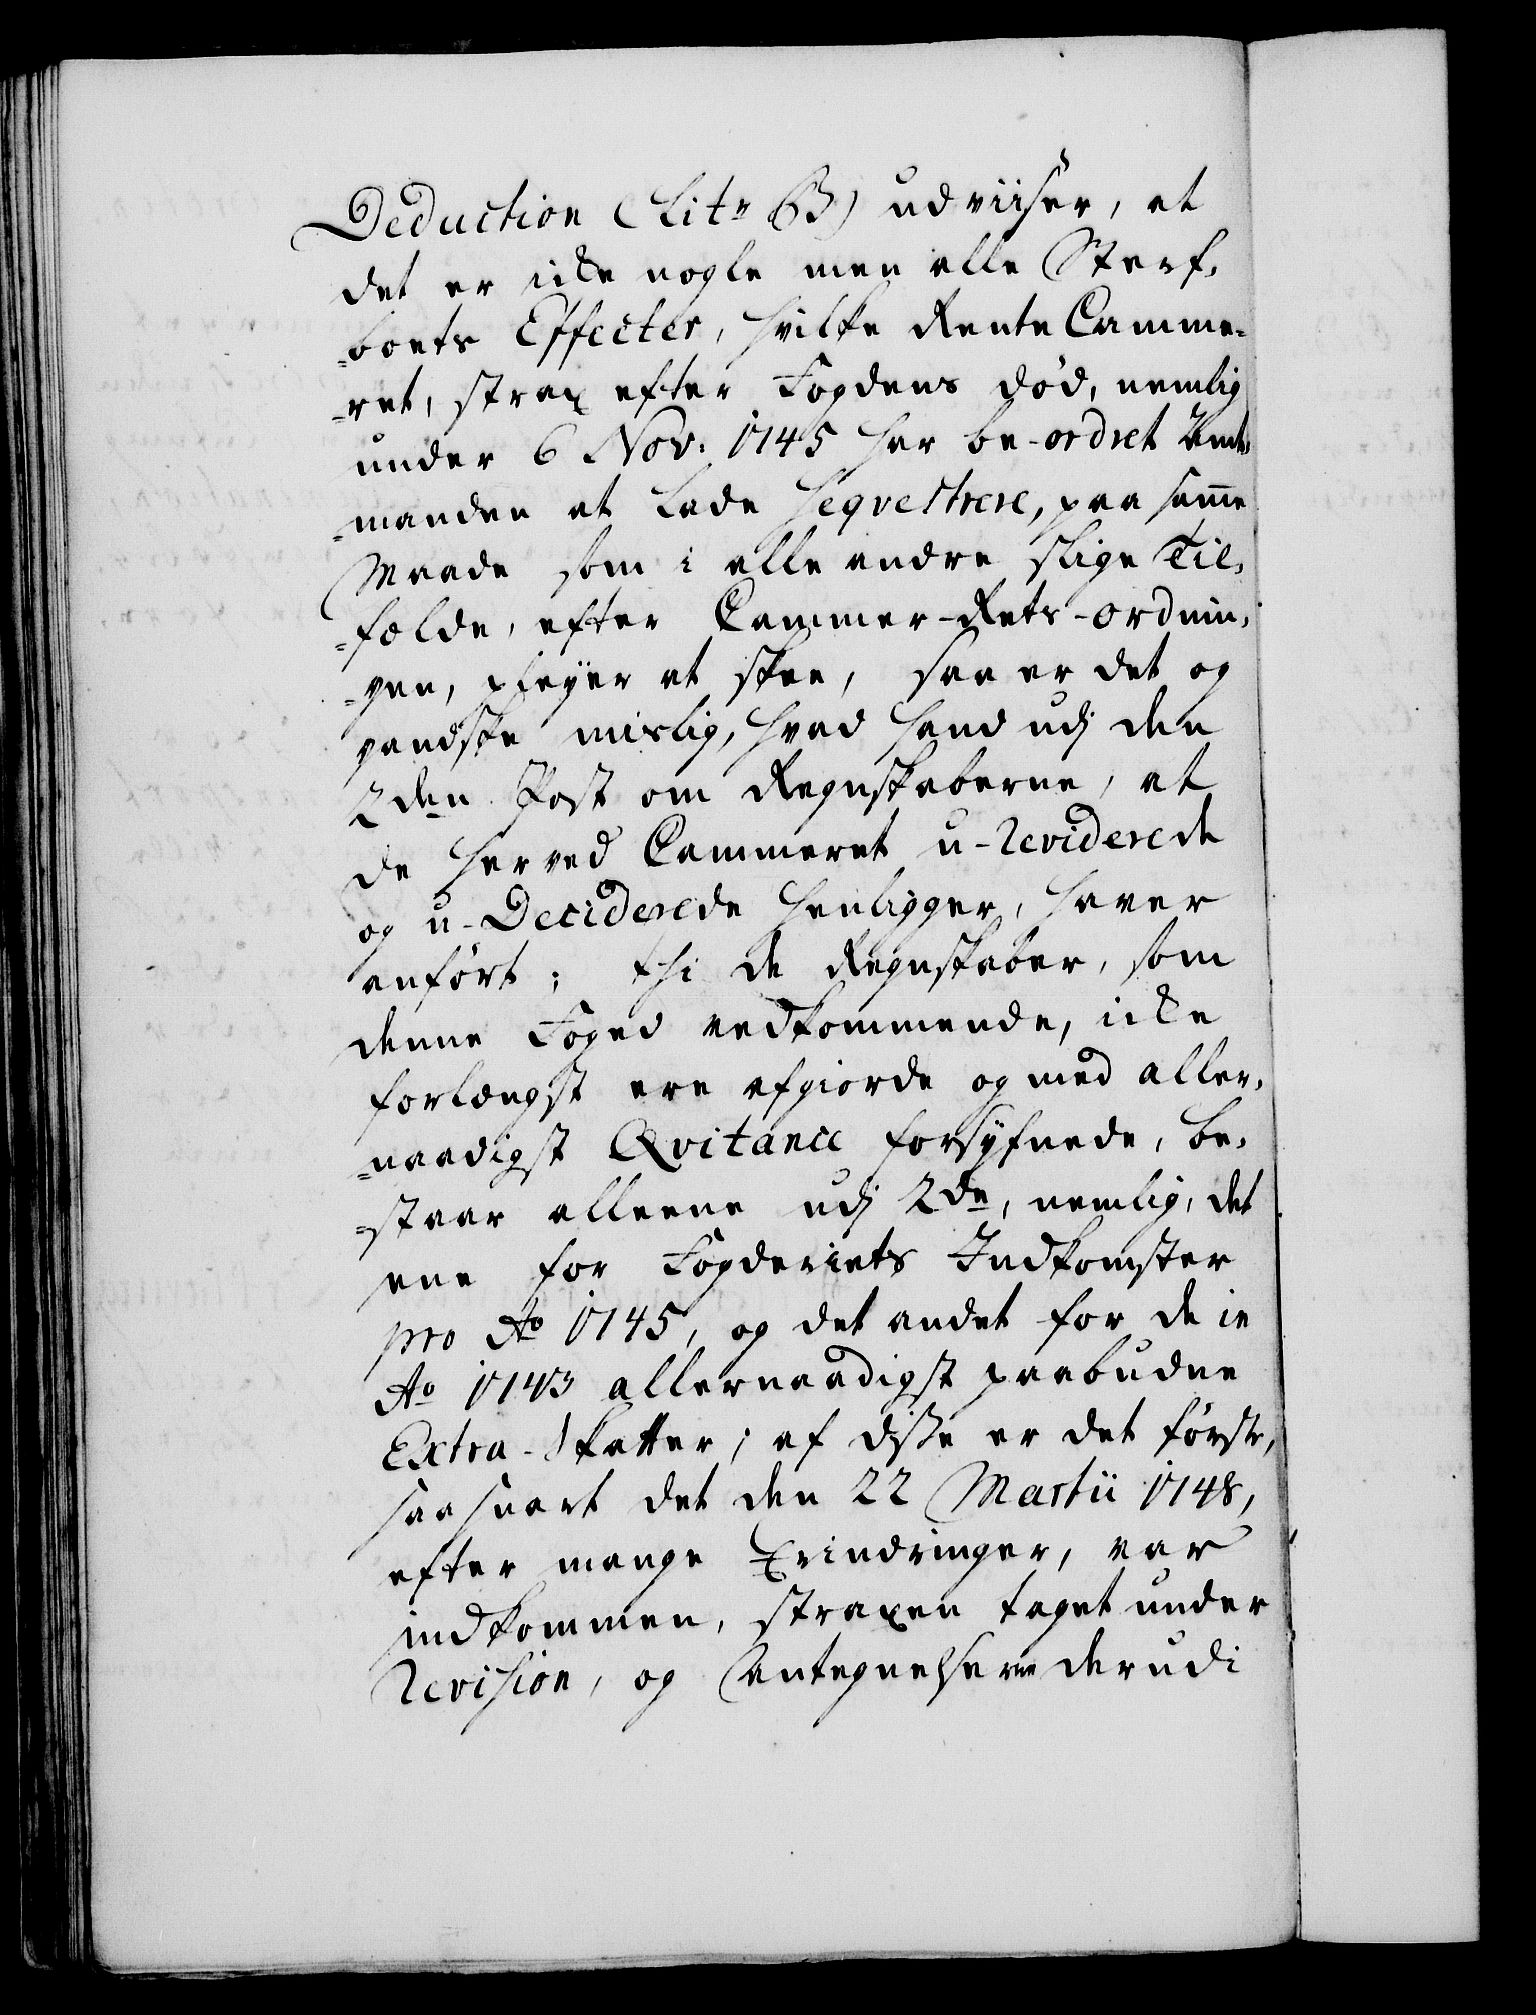 Deduction (Litr B) udviiser, at
det er icke nogle men alle Sterf-
-boets Effecter, hvilke Rente Camme-
-ret, strax efter Fogdens död, nemlig
under 6 Nov: 1745 har be-ordret Amt-
-manden at lade seqvestrere, paa same
Maade som i alle andre slige Til-
-fælde, efter Cammer-Rets-ordnin-
-gen, pleyer at skee, saa er det og
gandske mislig, hvad hand udj den
2den Post om Regnskaberne, at
de her ved Cammeret u-reviderede
og u-Deciderede henligger, haver
anfört; thi de Regnskaber, som
denne Foged vedkommende, icke
forlængst ere afgiorde og med aller-
-naadigst Qvitance forsyfnede, be-
-staar alleene udj 2de, nemlig, det
ene for Fogderiets Indkomster
pro Ao 1745, og det andet for de in
Ao 1743 allernaadigst paabudne
Extra-Skatter; af disse er det förste,
saasnart det den 22 Martii 1748,
efter mange Erindringer, var
indkommen, straxen taget under
Revision, og Antegnelserne derudi